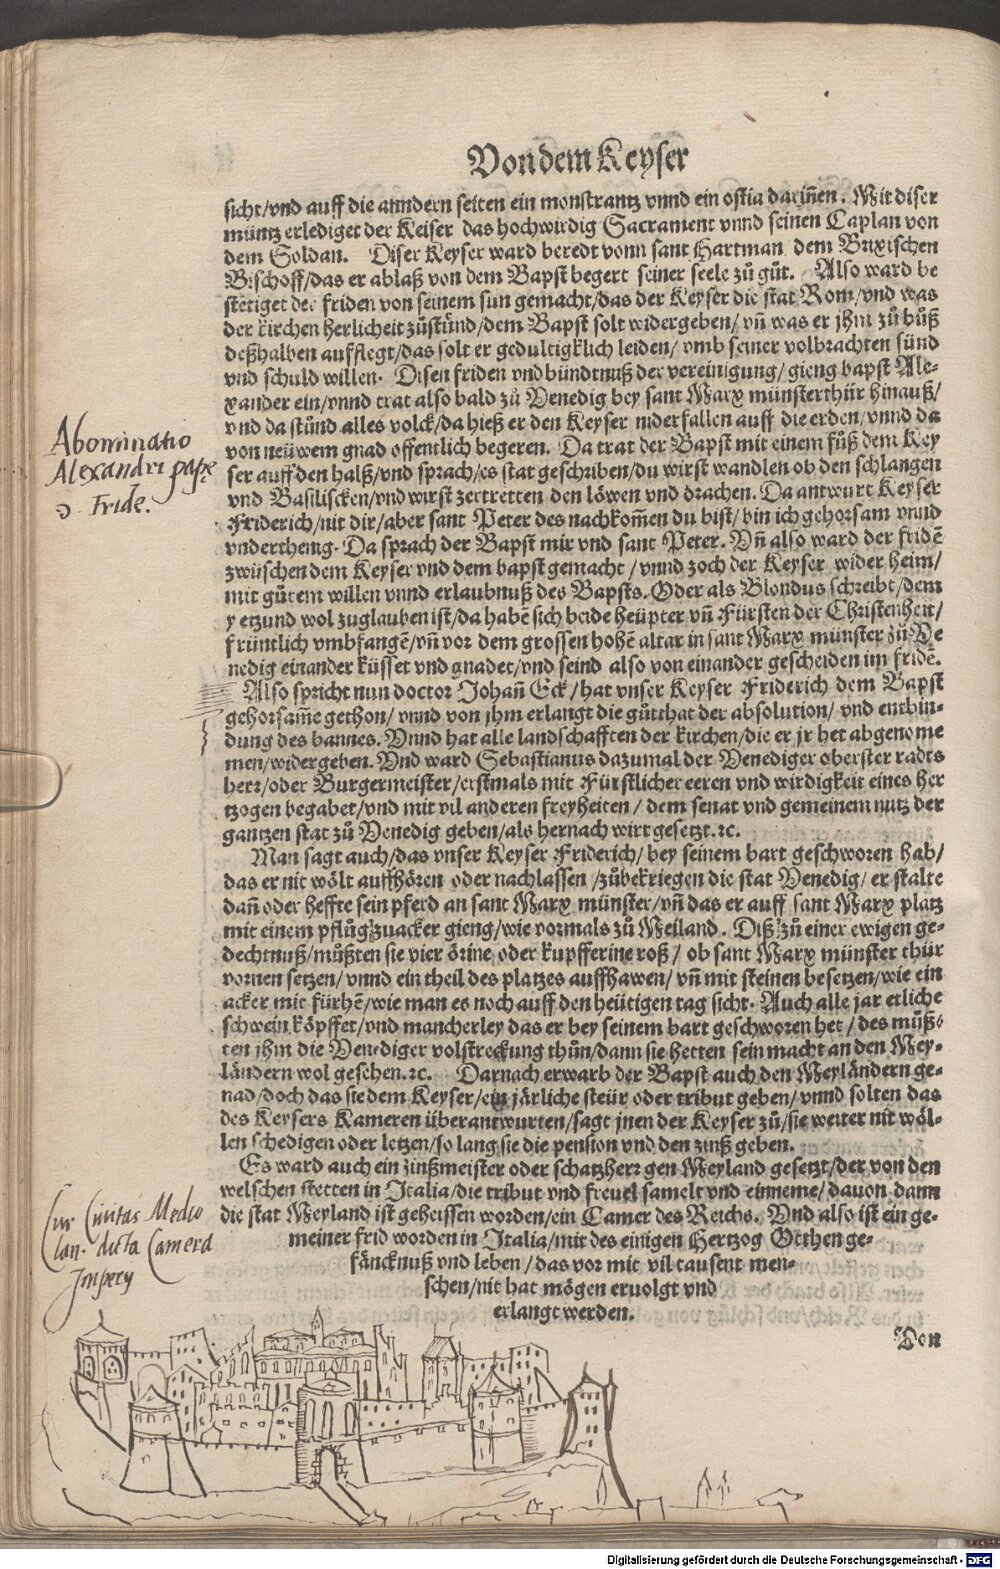 Von dem Keyser
sicht/vnd auff die anndern seiten ein monstrantz vnnd ein ostia dariñen. Mit diser
müntz erlediget der Keiser das hochwirdig Sacrament vnnd seinen Caplan von
dem Soldan. Diser Keyser ward beredt vonn sant Hartman dem Brixischen
Bischoff/das er ablaß von dem Bapst begert seiner seele zů gůt. Also ward be
stetiget der friden von seinem sun gemacht/das der Keyser die stat Rom/vnd was
der kirchen herlicheit zůstünd/dem Bapst solt widergeben/ vñ was er jhm zů bůß
deßhalben aufflegt/das solt er gedultigklich leiden/ vmb seiner volbrachten sünd
vnd schuld willen. Disen friden vnd bündtnuß der vereinigung/ gieng bapst Ale-
xander ein/vnnd trat also bald zů Venedig bey sant Marx münsterthür hinauß/
vnd da stůnd alles volck/da hieß er den Keyser niderfallen auff die erden/vnnd da
von neüwem gnad offentlich begeren. Da trat der Bapst mit einem fůß dem Key
ser auff den halß/vnd sprach/es stat geschriben/du wirst wandlen ob den schlangen
vnd Basiliscken/vnd wirst zertretten den löwen vnd drachen. Da antwurt Keyser
Friderich/nit dir/aber sant Peter des nachkom̃en du bist/ bin ich gehorsam vnnd
vnderthenig. Da sprach der Bapst mir vnd sant Peter. Vñ also ward der fridē
zwüschen dem Keyser vnd dem bapst gemacht/vnnd zoch der Keyser wider heim/
mit gůtem willen vnnd erlaubnuß des Bapsts. Oder als Blondus schreibt/dem
yetzund wol zuglauben ist/da habē sich beide heüpter vñ Fürsten der Christenheit/
früntlich vmbfangē/vñ vor dem grossen hohē altar in sant Marx münster zů Ve
nedig einander küsset vnd gnadet/vnd seind also von einander gescheiden im fridē.
Also spricht nun doctor Johañ Eck/hat vnser Keyser Friderich dem Bapst
gehorsam̃e gethon/ vnnd von jhm erlangt die gůtthat der absolution/ vnd entbin-
dung des bannes. Vnnd hat alle landschafften der kirchen/die er jr het abgenome
men/widergeben. Vnd ward Sebastianus dazumal der Venediger oberster radts
herr/oder Burgermeister/erstmals mit Fürstlicher eeren vnd wirdigkeit eines her
tzogen begabet/vnd mit vil anderen freyheiten/ dem senat vnd gemeinem nutz der
gantzen stat zů Venedig geben/als hernach wirt gesetzt.ꝛc.
Man sagt auch/das vnser Keyser Friderich/ bey seinem bart geschworen hab/
das er nit wölt auffhören oder nachlassen/zůbekriegen die stat Venedig/ er stalte
dañ oder heffte sein pferd an sant Marx münster/vñ das er auff sant Marx platz
mit einem pflůg zuacker gieng/wie vormals zů Meiland. Diß zů einer ewigen ge-
dechtnuß/můßten sie vier örine oder kupfferine roß/ ob sant Marx münster thür
vornen setzen/ vnnd ein theil des platzes auffhawen/ vñ mit steinen besetzen/wie ein
acker mit fürhē/wie man es noch auff den heütigen tag sicht. Auch alle jar etliche
schwein köpffet/vnd mancherley das er bey seinem bart geschworen het/des můß-
ten jhm die Venediger volstreckung thůn/dann sie hetten sein macht an den Mey-
ländern wol gesehen.ꝛc. Darnach erwarb der Bapst auch den Meyländern ge-
nad/doch das sie dem Keyser/ein järliche steür oder tribut geben/vnnd solten das
des Keysers Kameren überantwurten/sagt jnen der Keyser zů/sie weiter nit wöl-
len schedigen oder letzen/so lang sie die pension vnd den zinß geben.
Es ward auch ein zinßmeister oder schatzherr gen Meyland gesetzt/der von den
welschen stetten in Italia/die tribut vnd freuel samelt vnd einneme/dauon dann
die stat Meyland ist geheissen worden/ein Camer des Reichs. Vnd also ist ein ge-
meiner frid worden in Italia/mit des einigen Hertzog Otthen ge-
fäncknuß vnd leben/das vor mit vil tausent men-
schen/nit hat mögen eruolgt vnd
erlangt werden.
Von
Abominatio
Alexandri papę
Fride.
Cur Ciuitas Medio
lan. dicta Camera
Impery
Digitalisierung gefördert durch die Deutsche Forschungsgemeinschaft - DFG